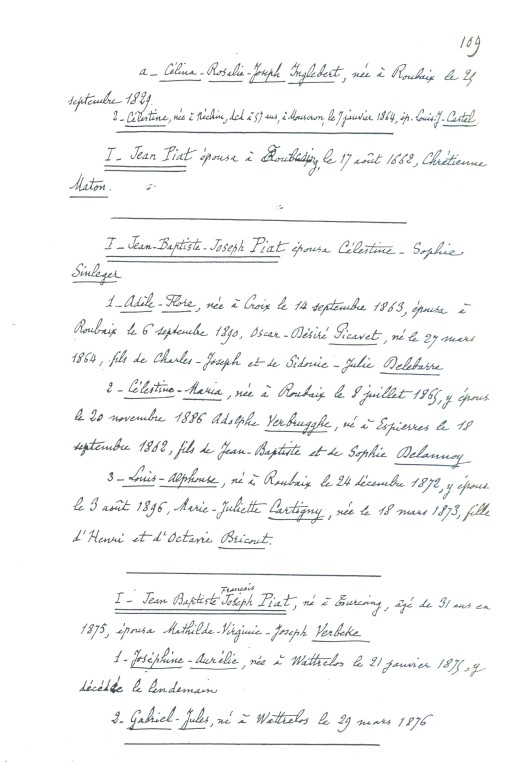 109
a_ Célina-Rosalie-Joseph Inglebert, née à Roubaix le 25
septembre 1829
2_ Célestine, née à Néchin, dcd à 57 ans, à Mouscron, le 7 janvier 1864, ép. Louis J. Castel
I_ Jean Piat épousa à le 17 août 1662, Chrétienne
Maton.
I_ Jean-Baptiste-Joseph Piat épousa Célestine-Sophie
Sinleger
1_ Adèle-Flore, née à Croix le 14 septembre 1863, épousa à
Roubaix le 6 septembre 1890, Oscar-Désiré Picavet, né le 27 mars
1864, fils de Charles-Joseph et de Sidonie-Julie Delebarra
2_ Célestine-Maria, née à Roubaix le 8 juillet 1865, y épous.
le 20 novembre 1886 Adolphe Verbrugghe, né à Espierres le 18
septembre 1862, fils de Jean-Baptiste et de Sophie Delannoy
3_ Louis-Alphonse, né à Roubaix le 24 décembre 1872, y épous.
le 3 août 1896, Marie-Juliette Cartigny, née le 18 mars 1873, fille
d'Henri et d'Octavie Bricout.
I_ Jean Baptiste François Joseph Piat, né à Tourcoing, âgé de 31 ans en
1875, épousa Mathilde-Virginie-Joseph Verbeke
1_ Joséphine-Aurélie, née à Wattrelos le 21 janvier 1875, y
décédée le lendemain
2_ Gabriel-Jules, né à Wattrelos le 29 mars 1876